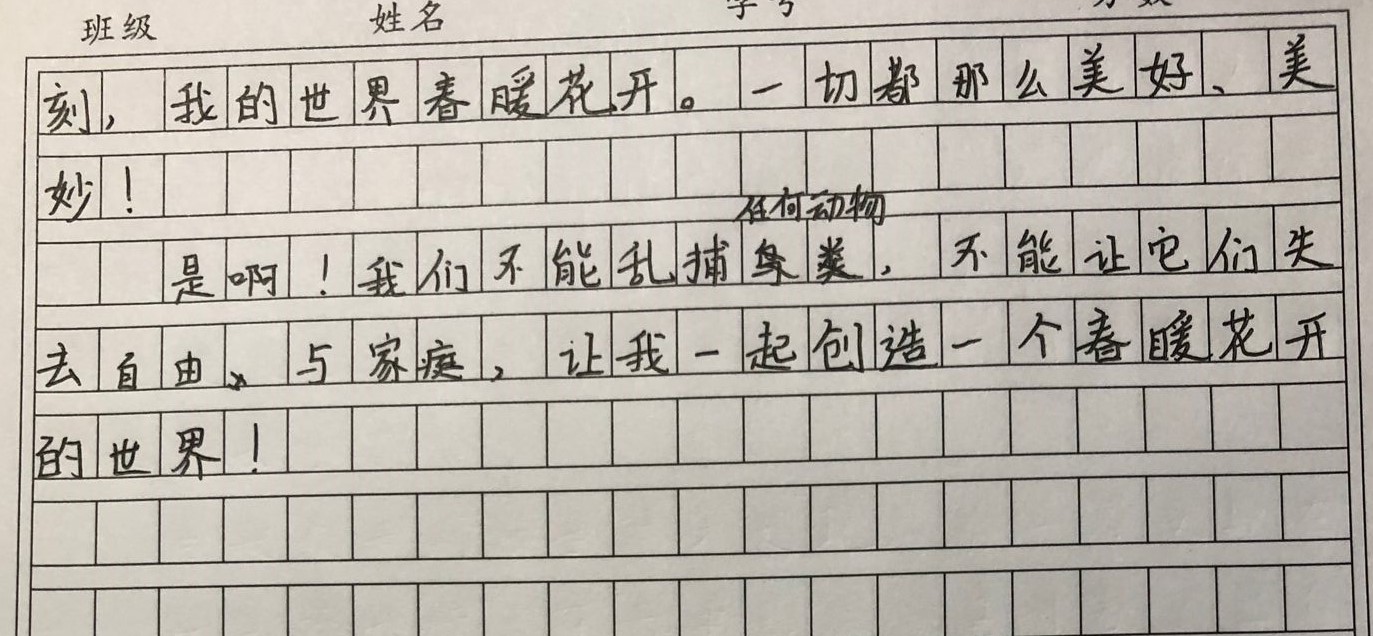 班级 姓名 学号 分数
刻，我的世界春暖花开。一切都那么美好、美
妙！
任何动物
是啊！我们不能乱捕鸟类，不能让它们失
去自由、与家庭，让我一起创造一个春暖花开
的世界！